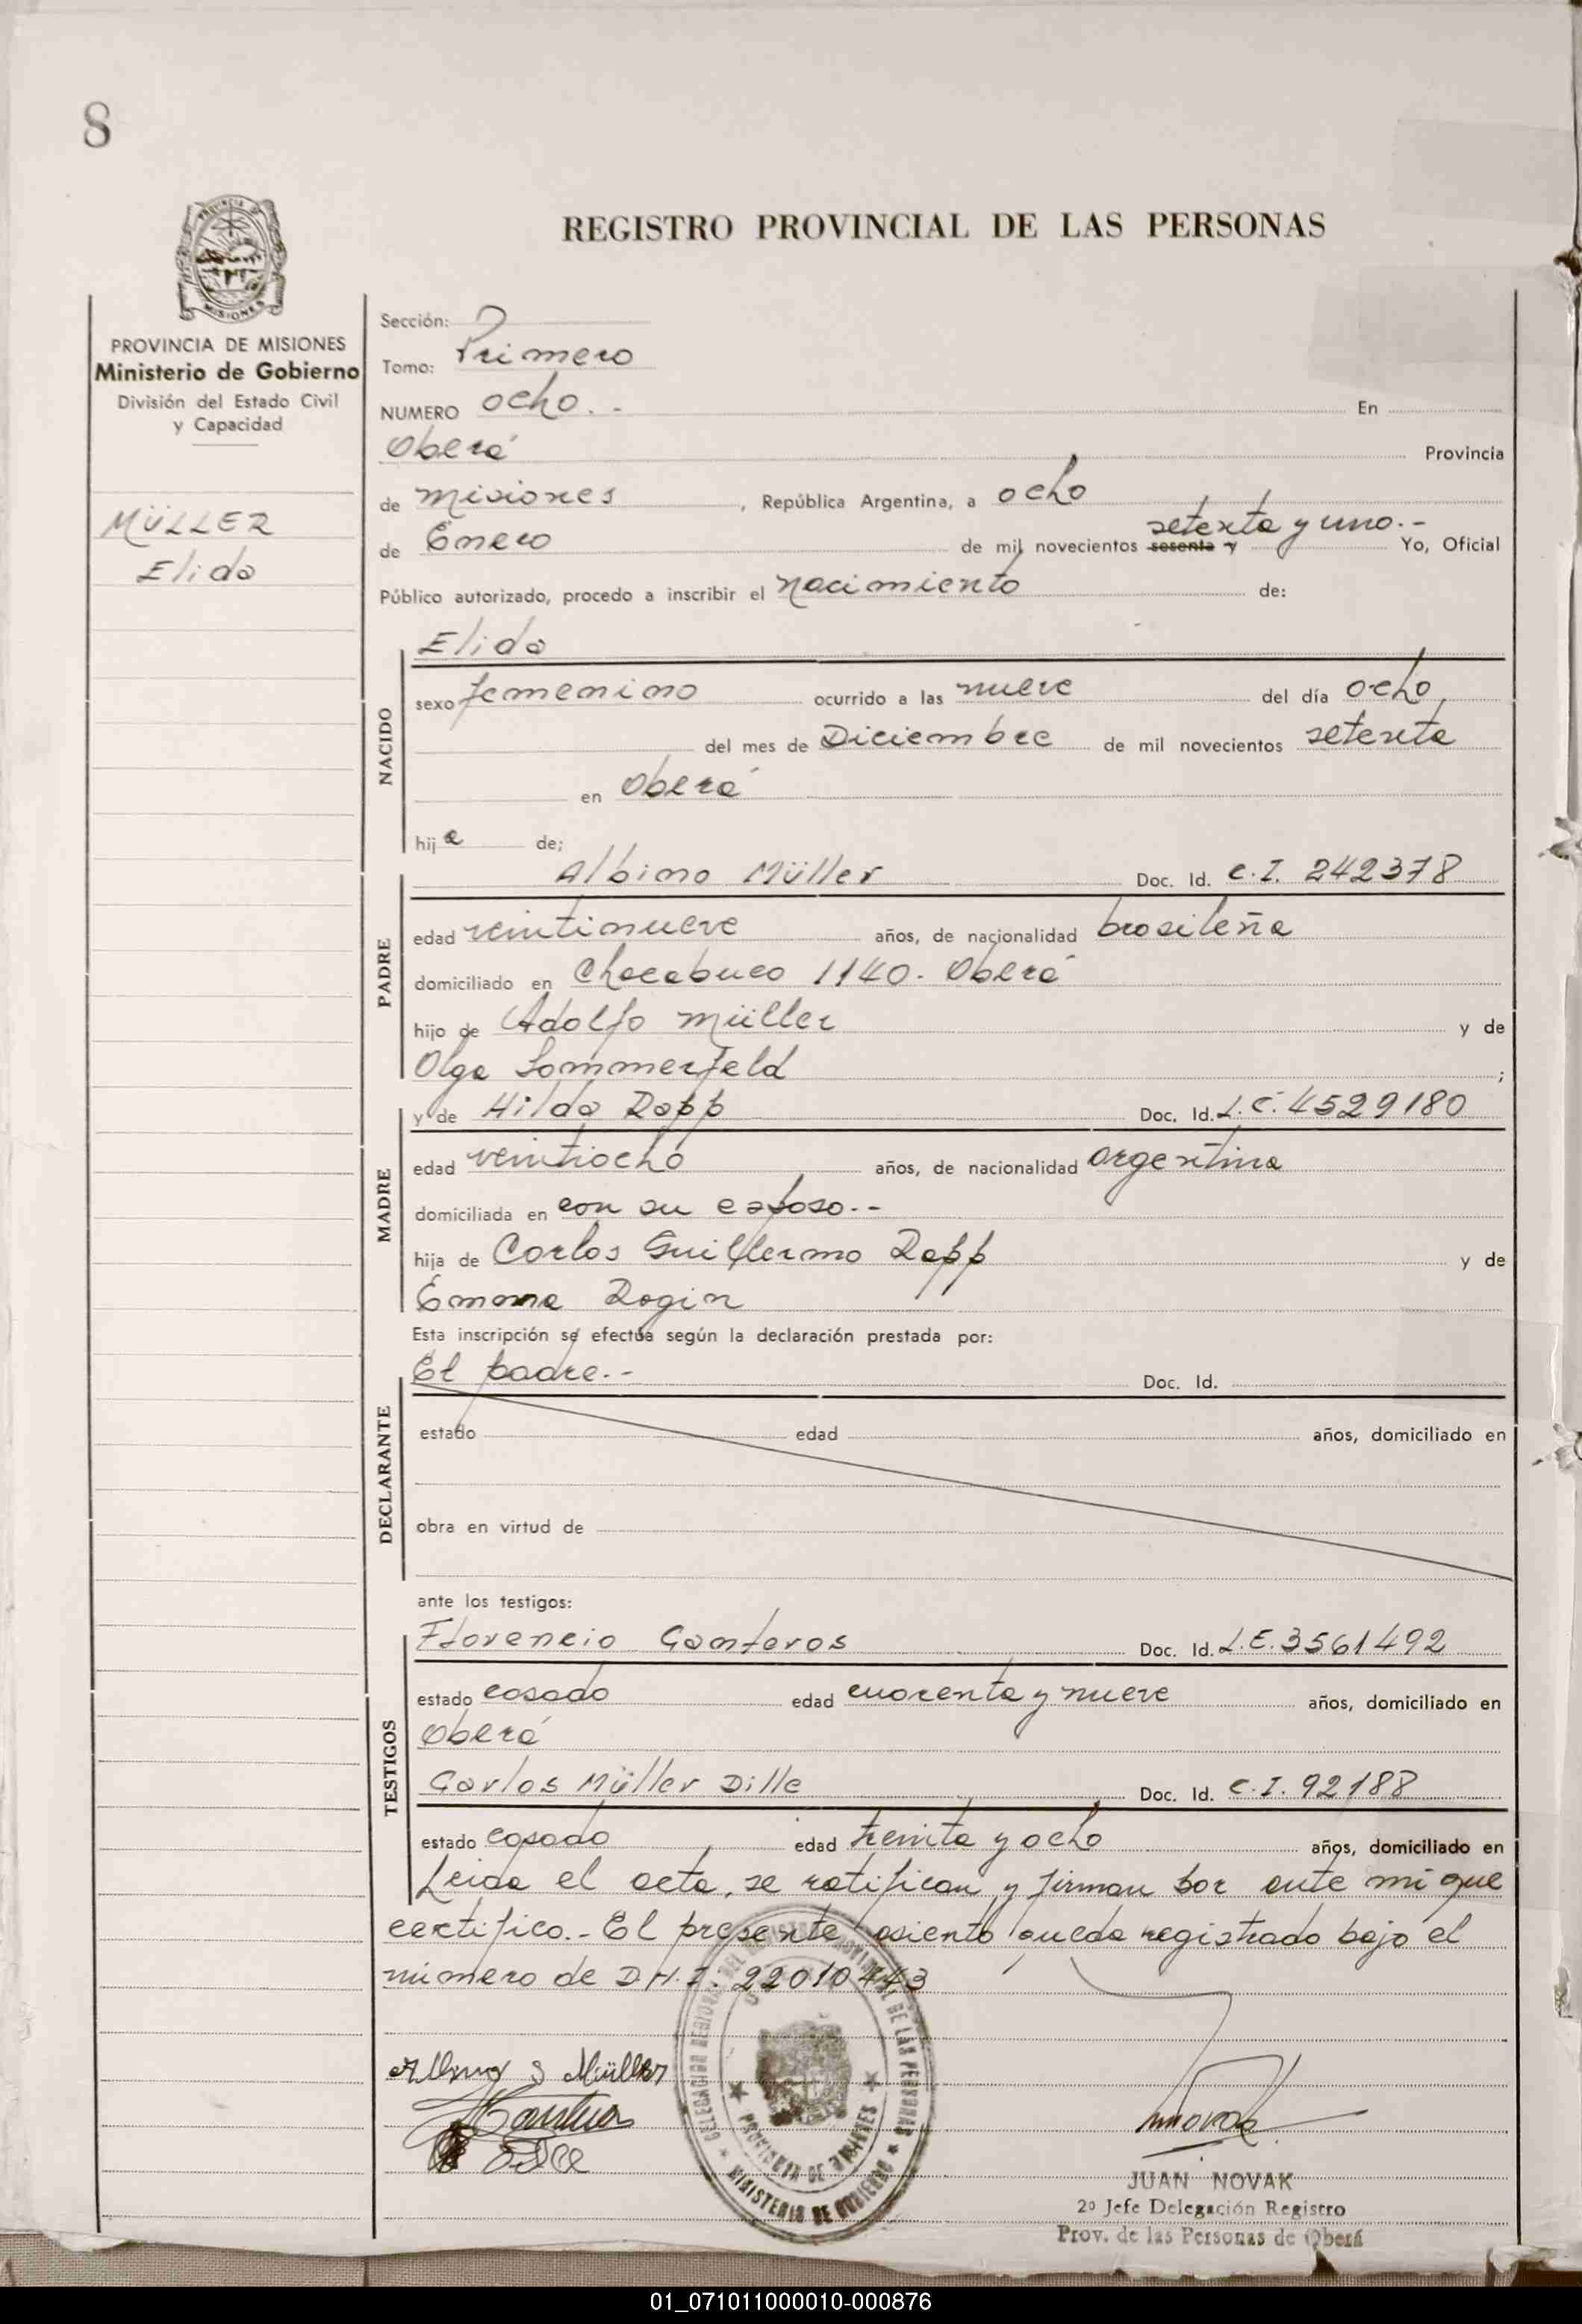 8
PROVINCIA DE MISIONES
Ministerio de Gobierno
División del Estado Civil
y Capacidad
MÜLLER
Elida
REGISTRO PROVINCIAL DE LAS PERSONAS
Sección:
Tomo: Primero
NUMERO ocho.- En
Oberá Provincia
de Misiones, República Argentina, a ocho
de Enero de mil novecientos sesenta y setenta y uno.- Yo, Oficial
Público autorizado, procedo a inscribir el nacimiento de:
NACIDO
Elida
sexo femenino ocurrido a las nueve del día ocho
del mes de Diciembre de mil novecientos setenta
en Oberá
hija de;
PADRE
Albino Müller Doc. Id. C.I. 242378
edad veintinueve años, de nacionalidad brasileña
domiciliado en Chacabuco 1140. Oberá
hijo de Adolfo Müller y de
Olga Sommerfeld ;
MADRE
y de Hilda Rapp Doc. Id. L.C. 4529180
edad veintiocho años, de nacionalidad argentina
domiciliada en con su esposo.-
hija de Carlos Guillermo Rapp y de
Emma Rogin
Esta inscripción se efectúa según la declaración prestada por:
DECLARANTE
El padre.- Doc. Id.
estado edad años, domiciliado en
obra en virtud de
ante los testigos:
TESTIGOS
Florencio Gamteros Doc. Id. L.E. 3561492
estado casado edad cuarenta y nueve años, domiciliado en
Oberá
Carlos Müller Dille Doc. Id. C.I. 92188
estado casado edad treinta y ocho años, domiciliado en
Leída el acta, se ratifican y firman por ante mí que
certifico.- El presente asiento queda registrado bajo el
número de D.N.I. 22010443
Albino S Müller
DELEGACION REGIONAL DEL REGISTRO PROVINCIAL DE LAS PERSONAS
PROVINCIA DE MISIONES
MINISTERIO DE GOBIERNO
JUAN NOVAK
2º Jefe Delegación Registro
Prov. de las Personas de Oberá
01_071011000010-000876